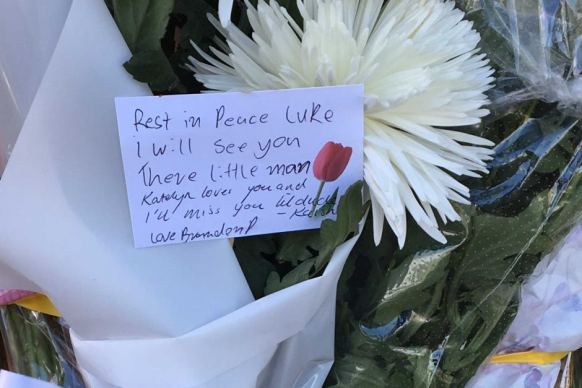 Rest in Peace Luke
i will see you
There little man
Katelyn loves you and
I'll miss you lil dude
Love Brandon